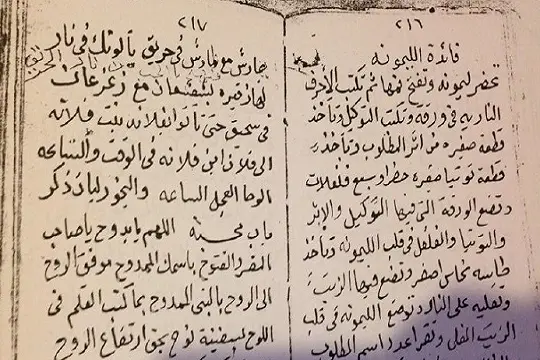 ٢١٦
فائدة الليمونه
تحضر ليمونه وتفتح فمها ثم تكتب الاحرف
الناريه في ورقه وتكتب التوكل وتأخذ
قطعة صغيره من اثر المطلوب وتأخذ
قطعة توتيا وسبع فلفلات
وتضع الورقة التي فيها التوكيل والاثر
والتوتيا والفلفل في قلب الليمونه وتأخذ
طاسه نحاس اصفر وتضع فيها الزيت
وتغليه على النار وتوضع الليمونه في قلب
الزيت المغلى وتقرأ عدد اسم المطلوب
٢١٧
مع في حريق في نار
لها زفره مع
في سحيق حتى تأتوا بفلانه بنت فلانه
الى فلان ابن فلانه في الوقت والساعه
الوحا العجل الساعه والبخور لبان ذكر
باب محبة اللهم يا بدوح يا صاحب
المفرد الفتوح باسمك الممدوح موفق الروح
الى الروح بالنبي الممدوح بما كتب القلم في
اللوح لسفينة نوح بحق ارتفاع الروح